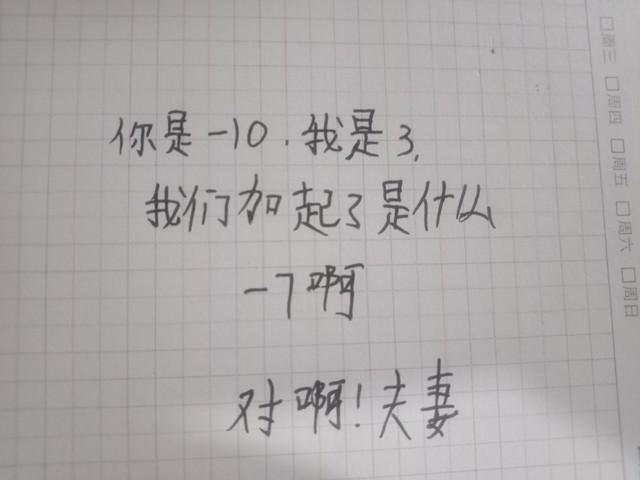 你是-10.我是3,
我们加起了是什么
-7啊
对啊!夫妻
周三
周四
周五
周六
周日